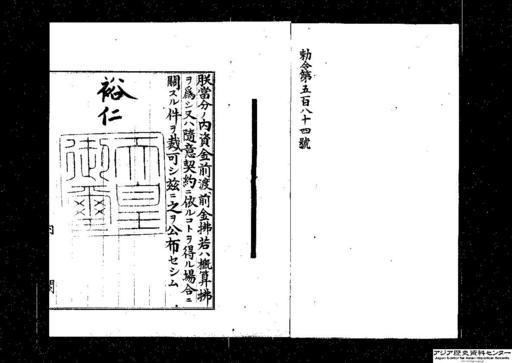 勅令第五百八十四號
朕當分ノ内資金前渡前金拂若ハ概算拂
ヲ爲シ又ハ隨意契約ニ依ルコトヲ得ル場合ニ
關スル件ヲ裁可シ玆ニ之ヲ公布セシム
裕仁
天皇
御璽
内閣
アジア歴史資料センター
Japan Center for Asian Historical Records